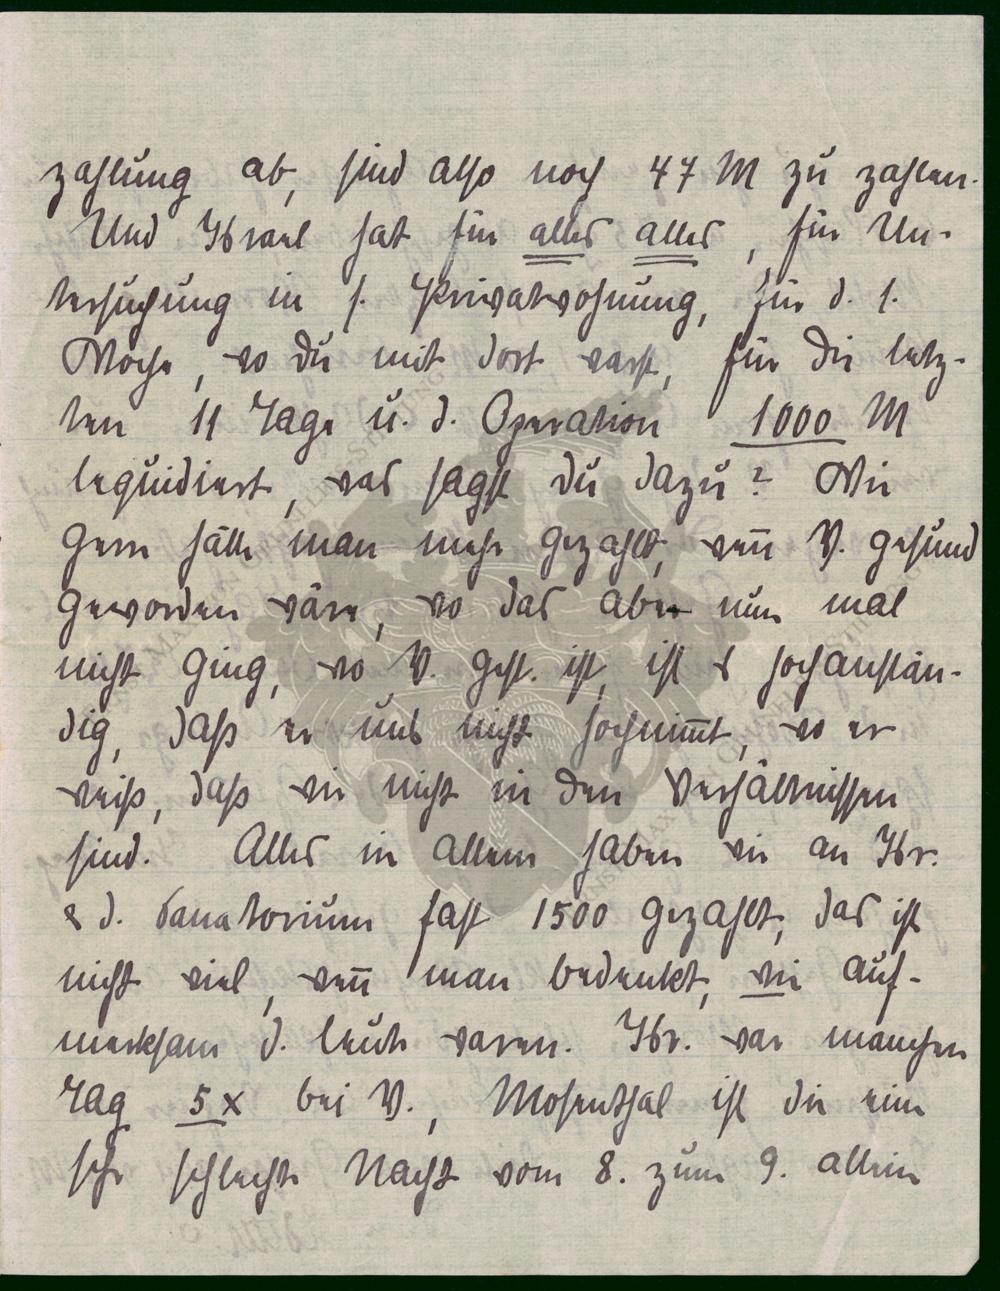 zahlung ab, sind also noch 47 M zu zahlen.
Und Israel hat für alles alles, für Un-
tersuchung in s. Privatwohnung, für d. 1.
Woche, wo du mit dort warst, für die letz-
ten 11 Tage u. d. Operation 1000 M
lequidiert, was sagst du dazu? Wie
gern hätte man mehr gezahlt, wenn V. gesund
geworden wäre, wo das aber nun mal
nicht ging, wo V. gest. ist, ist es hochanstän-
dig, daß er uns nicht hochnimmt, wo er
weiß, daß wir nicht in den Verhältnissen
sind. Alles in allem haben wir an Isr.
& d. Sanatorium fast 1500 gezahlt, das ist
nicht viel, wenn man bedenkt, wie auf-
merksam d. Leute waren. Isr. war manchen
Tag 5 x bei V., Mosenthal ist die eine
sehr schlechte Nacht vom 8. zum 9. allein